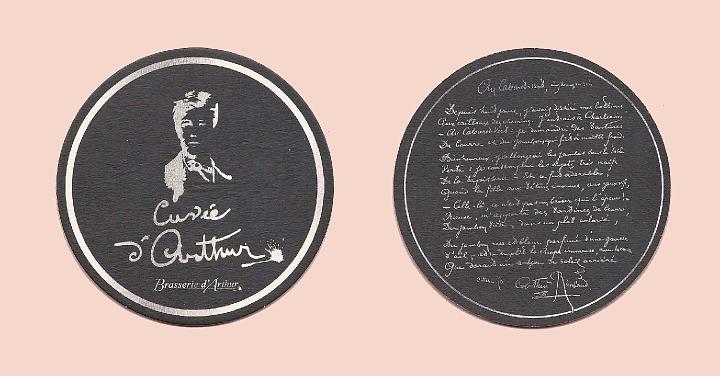 Cuvée
d'Arthur
Brasserie d'Arthur
Au Cabaret-Vert, cinq heures du soir
Depuis huit jours, j'avais déchiré mes bottines
Aux cailloux des chemins. J'entrais à Charleroi.
- Au Cabaret-Vert : je demandai des tartines
De beurre et du jambon qui fût à moitié froid.
Bienheureux, j'allongeai les jambes sous la table
Verte : je contemplai les sujets très naïfs
De la tapisserie. - Et ce fut adorable,
Quand la fille aux tétons énormes, aux yeux vifs,
- Celle-là, ce n'est pas un baiser qui l'épeure ! -
Rieuse, m'apporta des tartines de beurre,
Du jambon tiède, dans un plat colorié,
Du jambon rose et blanc parfumé d'une gousse
D'ail, - et m'emplit la chope immense, avec sa mousse
Que dorait un rayon de soleil arriéré.
Arthur Rimbaud